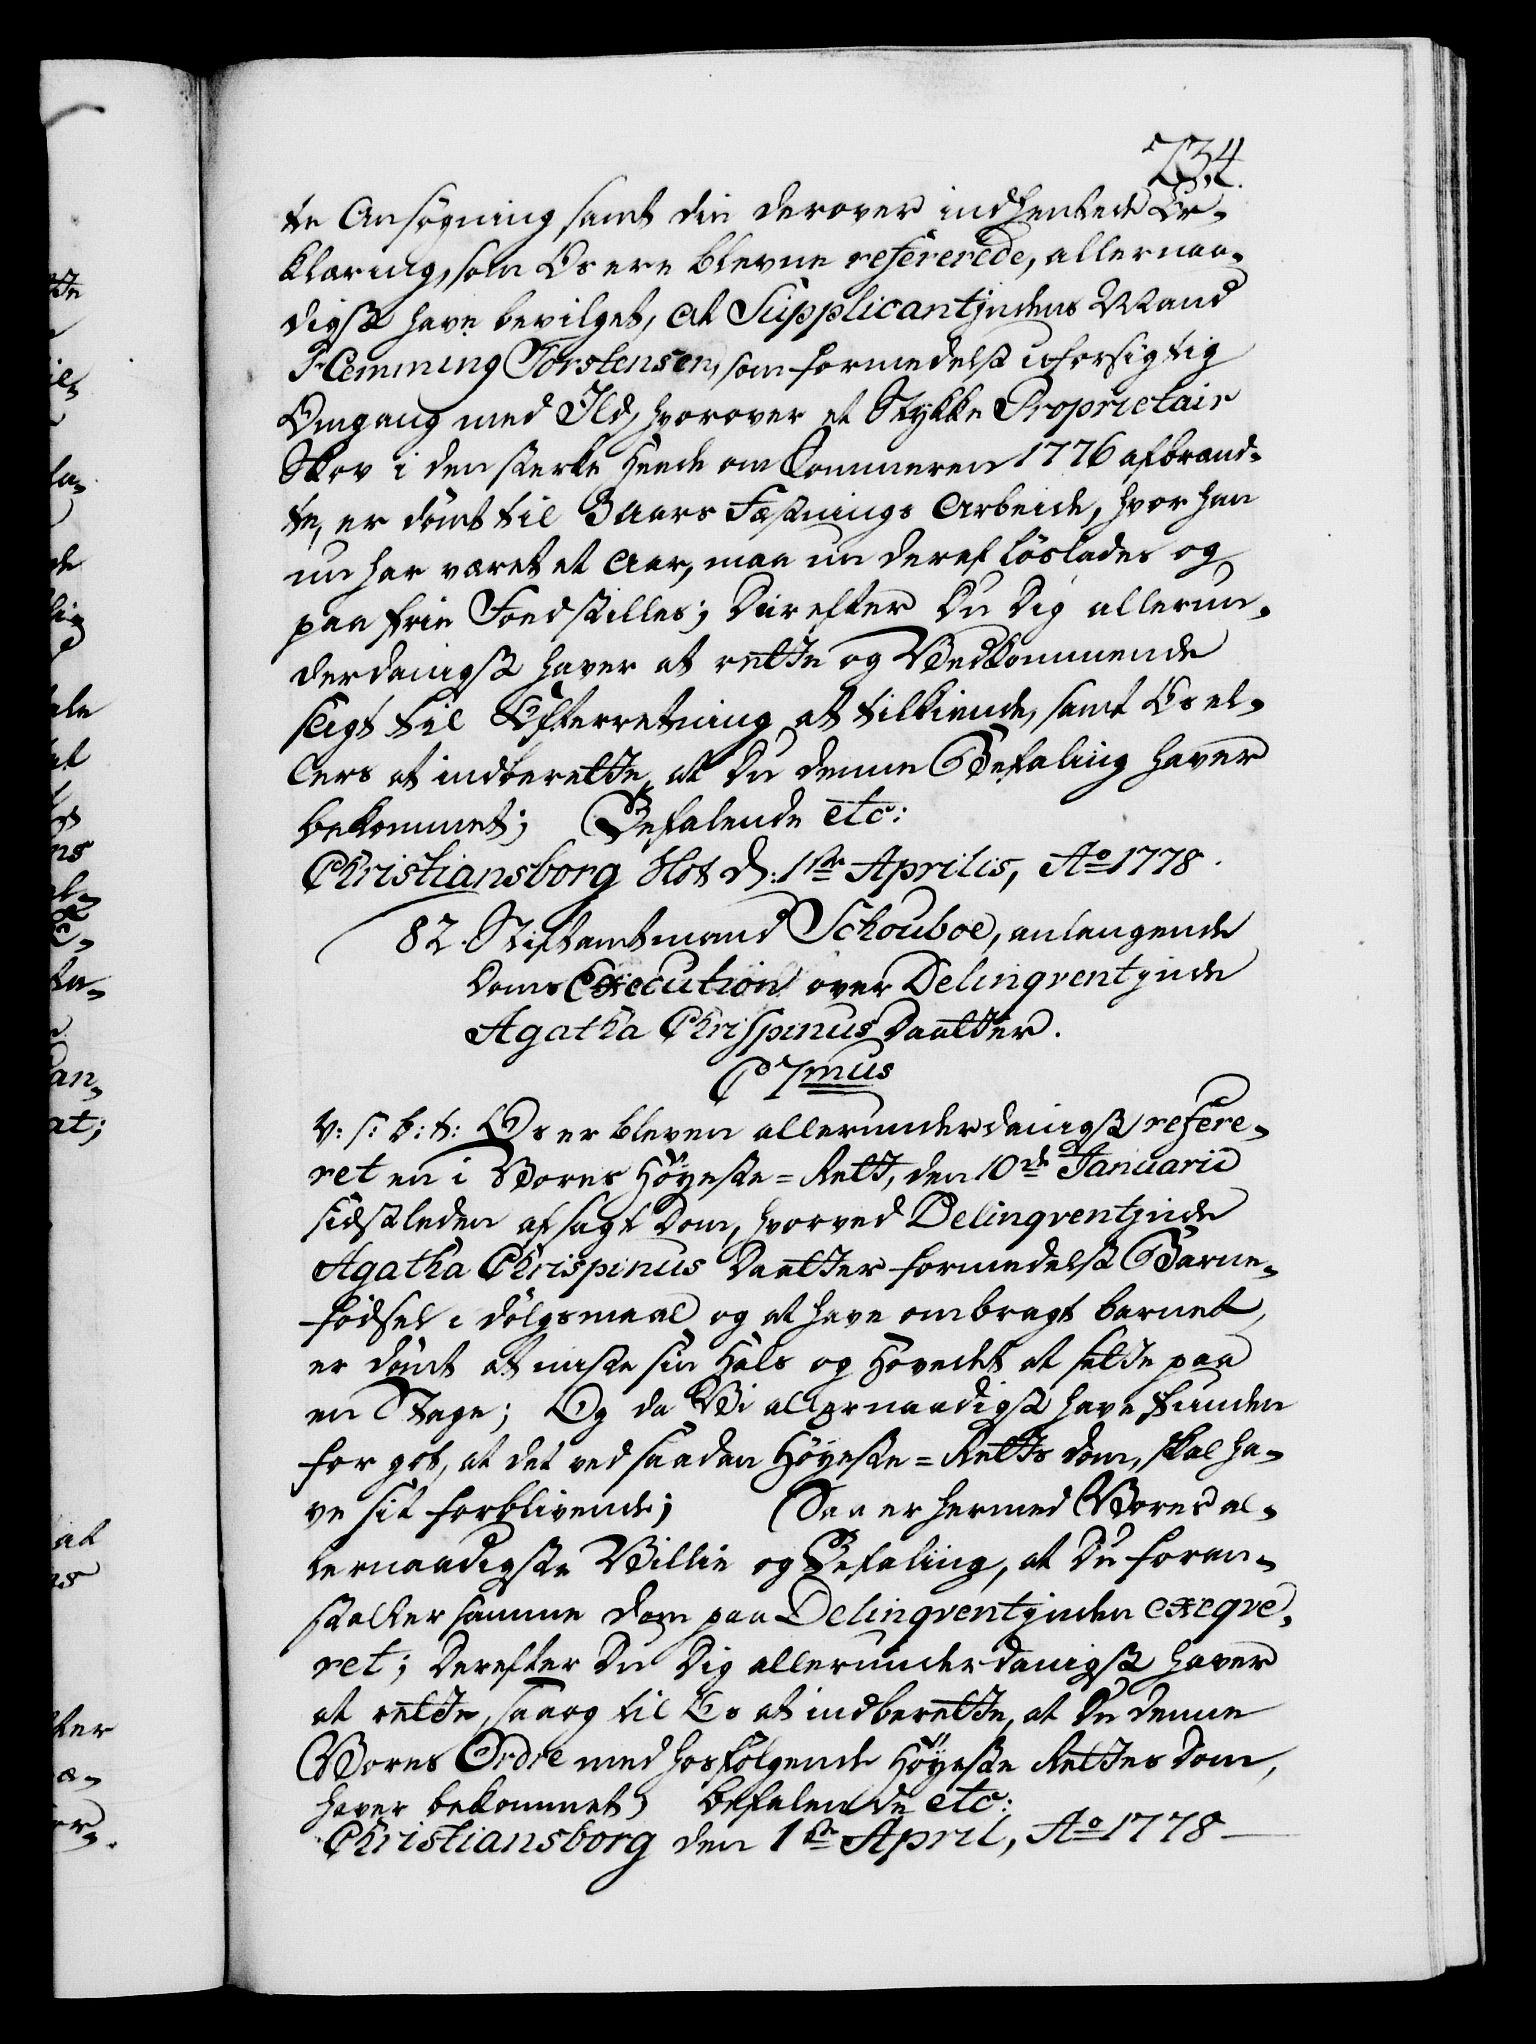 734.
te Ansøgning samt din derover indhentede Er-
klæring, som Os ere blevne refererede, allernaa-
digst have bevilget, at Supplicantindens Mand
Flemming Torstensen, som formedelst uforsigtig
Omgang med Ild, hvorover et Stykke Proprietair
Skov i den sterke Heede om Sommeren 1776 afbrænd-
te, er dømt til 3 Aars Fæstnings Arbeide, hvor han
nu har været et Aar, maa nu deraf løslades og
paa frie Foed stilles; Derefter Du Dig allerun-
derdanigst haver at rette og Vedkommende
sligt til Efterretning at tilkiende, samt Os el-
lers at indberette, at Du denne Befaling haver
bekommet; Befalende etc:
Christiansborg Slot d: 1ste Aprilis, Ao 1778.
82. Stiftamtmand Schouboe, anlangende
Doms Execution over Delinqventinde
Agatha Chrispinus Daatter.
C 7mus
V: s: b: t: Os er bleven allerunderdanigst refere-
ret en i Vores Høyeste-Rett, den 10de Januarii
sidstleden afsagt Dom, hvorved Delinqventinde
Agatha Chrispinus Daatter formedelst Barne-
fødsel i Dølgsmaal og at have ombragt barnet,
er dømt at miste sin Hals og Hovedet at sættes paa
en Stage; Og da Vi allernaadigst have funden
for got, at det ved saadan Høyeste-Retts Dom, skal ha-
ve sit forblivende; Saa er hermed Vores al-
lernaadigste Villie og Befaling, at Du foran-
stalter samme Dom paa Delinqventinden exeqve-
ret; Derefter Du Dig allerunderdanigst haver
at rette, saa og til Os at indberette, at Du denne
Vores Ordre med hosfølgende Høyeste Rettes Dom,
haver bekommet; Befalende etc:
Christiansborg den 1ste April, Ao 1778